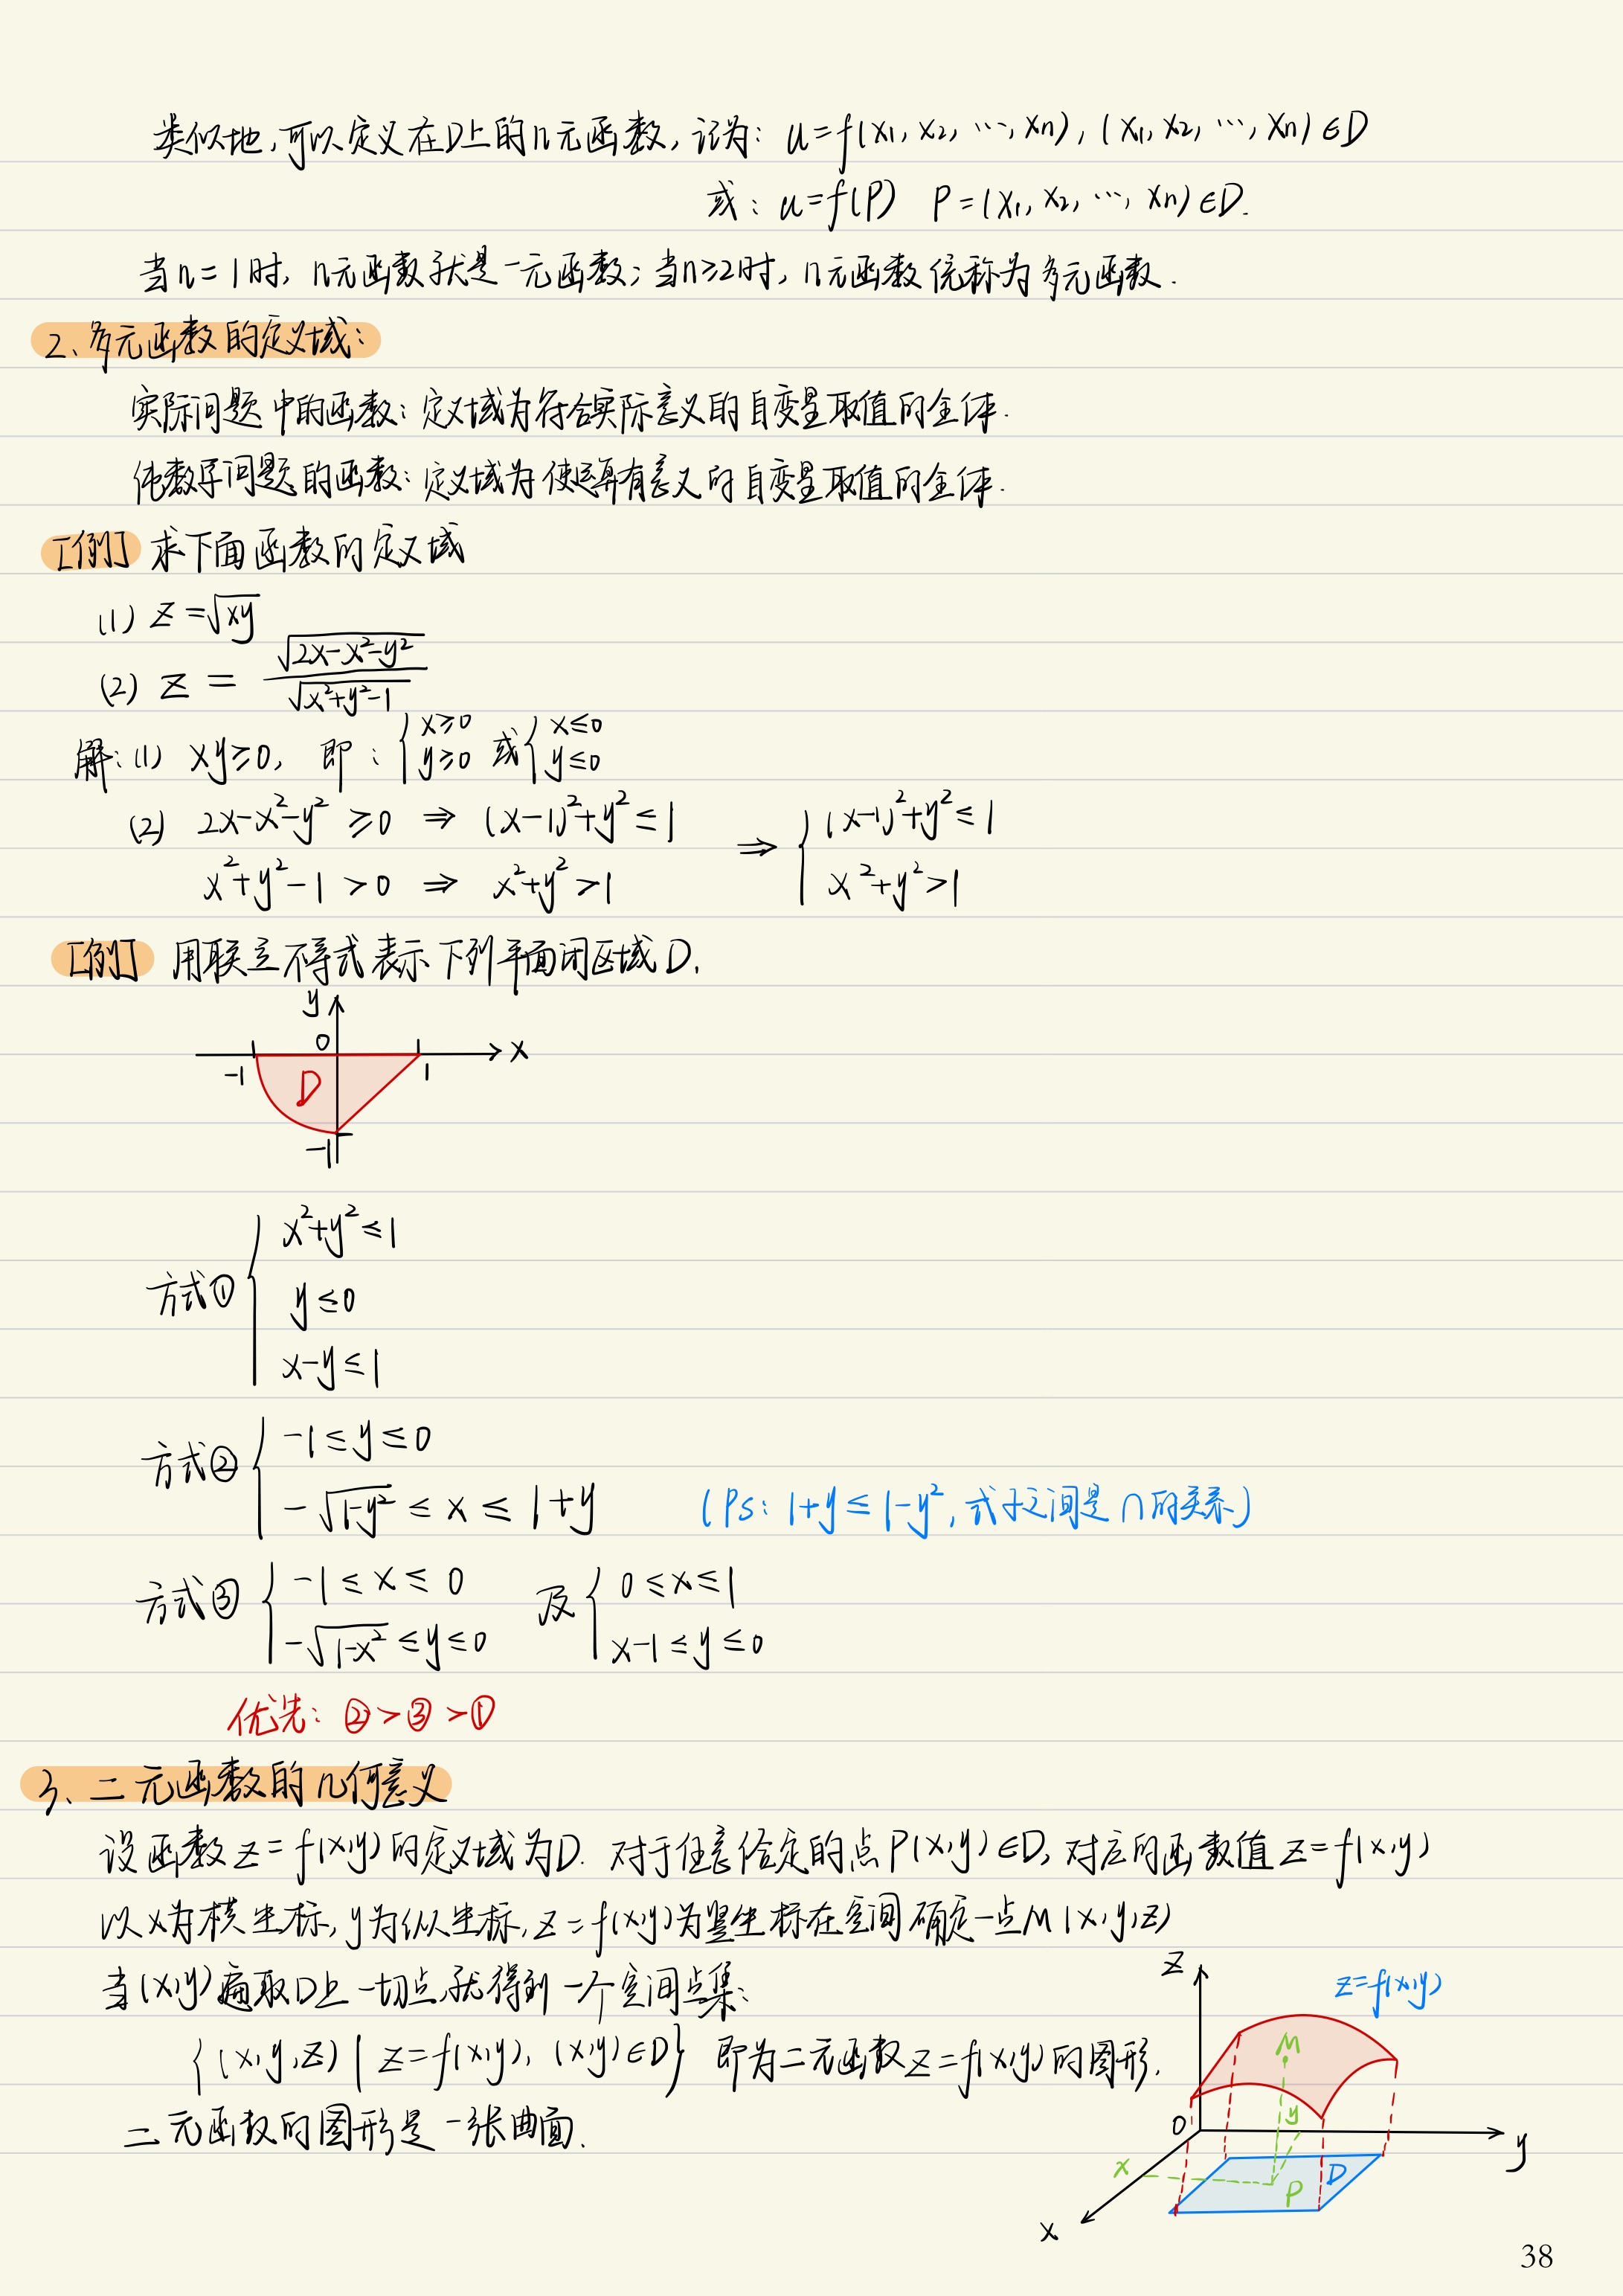 类似地,可以定义在D上的n元函数,记为: u=f(x₁, x₂, ⋯, xn), (x₁, x₂, ⋯, xn)∈D
或: u=f(P) P=(x₁, x₂, ⋯, xn)∈D.
当n=1时, n元函数就是一元函数; 当n≥2时, n元函数统称为多元函数.
2、多元函数的定义域:
实际问题中的函数: 定义域为符合实际意义的自变量取值的全体.
纯数学问题的函数: 定义域为使运算有意义的自变量取值的全体.
[例] 求下面函数的定义域
(1) z=√(xy)
(2) z = √(2x-x²-y²) / √(x²+y²-1)
解: (1) xy≥0, 即: { x≥0 y≥0 或 { x≤0 y≤0
(2) 2x-x²-y² ≥0 ⇒ (x-1)²+y²≤1
x²+y²-1>0 ⇒ x²+y²>1
⇒ { (x-1)²+y²≤1
x²+y²>1
[例] 用联立不等式表示下列平面闭区域D.
y
0
x
-1
D
1
-1
方式① { x²+y²≤1
y≤0
x-y≤1
方式② { -1≤y≤0
-√(1-y²) ≤ x ≤ 1+y (Ps: 1+y≤1-y², 式子之间是∩的关系)
方式③ { -1≤x≤0 及 { 0≤x≤1
-√(1-x²) ≤y≤0 x-1≤y≤0
优先: ②>③>①
3、二元函数的几何意义
设函数z=f(x,y)的定义域为D. 对于任意给定的点P(x,y)∈D, 对应的函数值z=f(x,y)
以x为横坐标, y为纵坐标, z=f(x,y)为竖坐标在空间确定一点M(x,y,z)
当(x,y)遍取D上一切点,就得到一个空间点集:
{(x,y,z) | z=f(x,y), (x,y)∈D} 即为二元函数z=f(x,y)的图形.
二元函数的图形是一张曲面.
z
z=f(x,y)
M
y
0
y
x
D
P
x
38